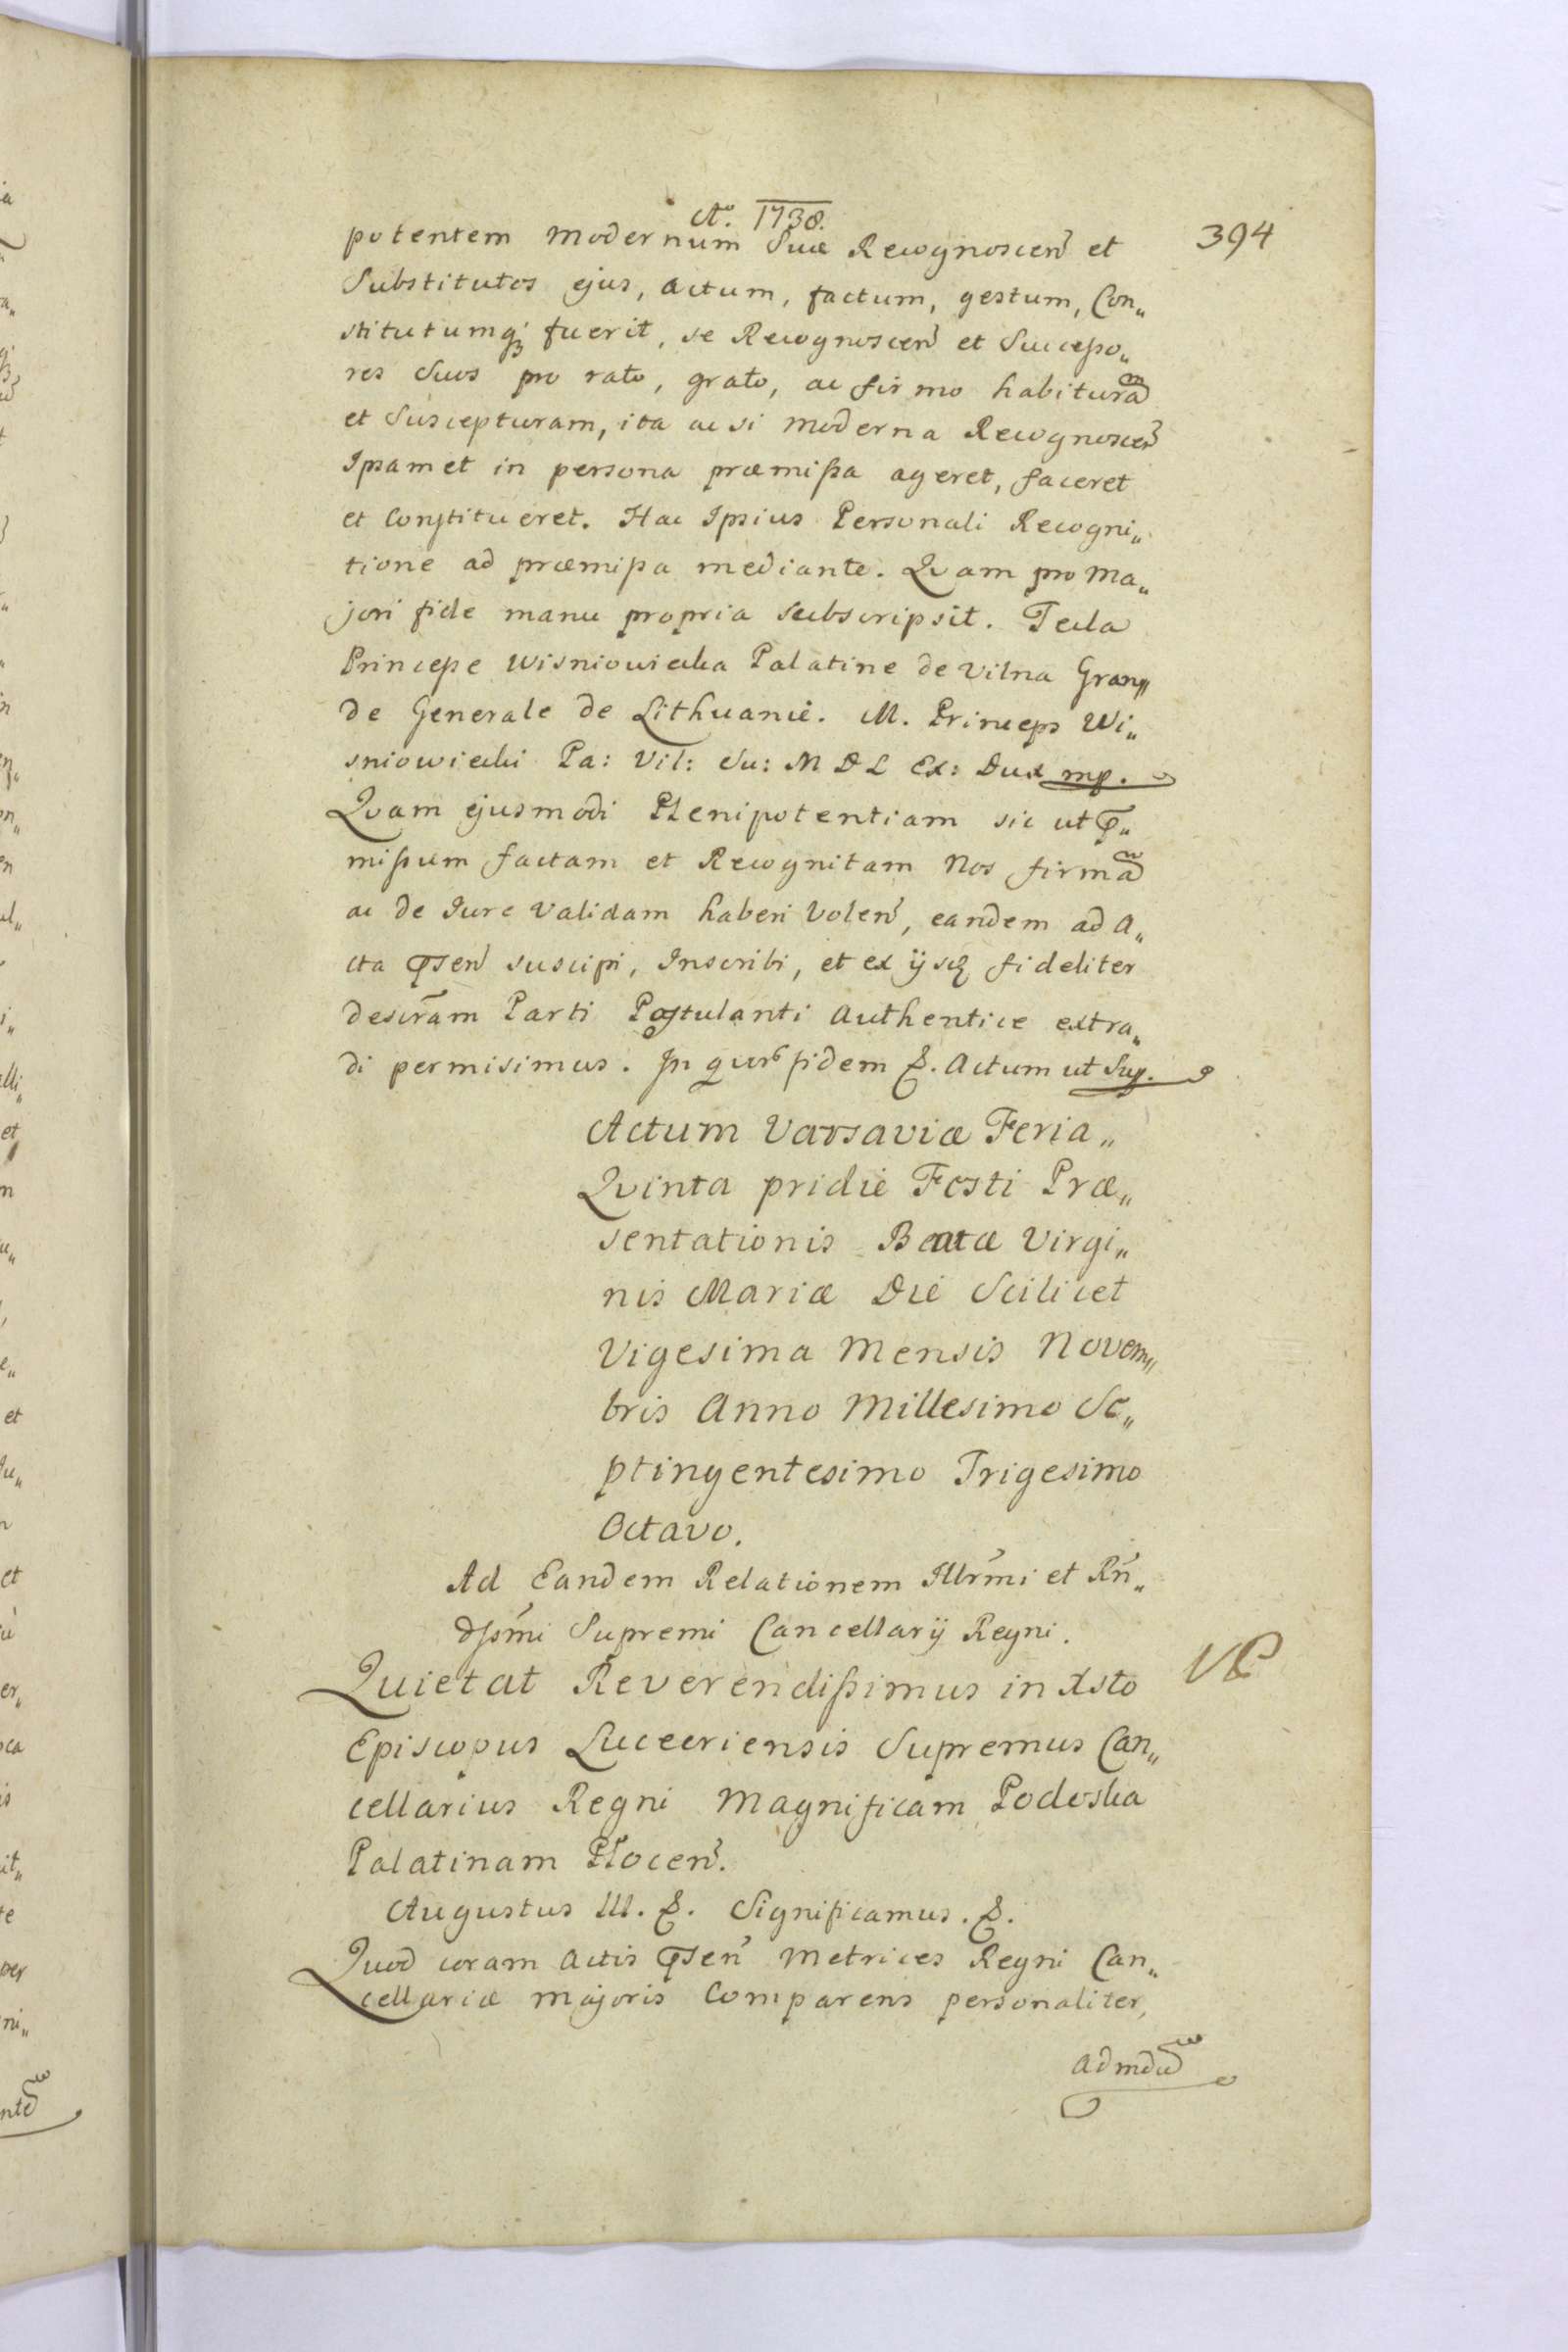 Ao. 1738.
394
potentem modernum Suæ Recognoscen̄ et
Substitutos ejus, actum, factum, gestum, Con„
stitutumq; fuerit, se Recognoscen̄ et Succeßo„
res Suos pro rato, grato, ac firmo habiturã
et Suscepturam, ita ac si moderna Recognoscen̄
Ipsamet in persona præmißa ageret, faceret
et Constitueret. Hac Ipsius Personali Recogni„
tione ad præmißa mediante. Qvam pro Ma„
jori fide manu propria subscripsit. Tecla
Princeße Wisniowiecka Palatine de Vilna Gran„
de Generale de Lithuanie. M. Princeps Wi„
sniowiecki Pa: Vil: Su: M D L Ex: Dux mp.
Qvam ejusmodi Plenipotentiam sic ut p̄„
mißum factam et Recognitam Nos firmã
ac de Iure Validam haberi Volen̄, eandem ad A„
cta p̄sen̄ suscipi, Inscribi, et ex ijsq; fideliter
descr̄am Parti Postulanti Authentice extra„
di permisimus. In quor̄ fidem &. Actum ut Sup.
Actum Varsaviæ Feria„
Qvinta pridie Festi Præ„
sentationis Beatæ Virgi„
nis Mariæ Die Scilicet
Vigesima Mensis Novem„
bris Anno Millesimo Se„
ptingentesimo Trigesimo
Octavo.
Ad Eandem Relationem Illr̄mi et Rn̄„
dſsm̄i Supremi Cancellarij Regni.
Quietat Reverendißimus in Xsto
Episcopus Luceoriensis Supremus Can„
cellarius Regni Magnificam Podoska
Palatinam Plocen̄.
Augustus III. &. Significamus. &.
Quod coram Actis p̄sen̄ Metrices Regni Can„
cellariæ majoris Comparens personaliter,
admdũ